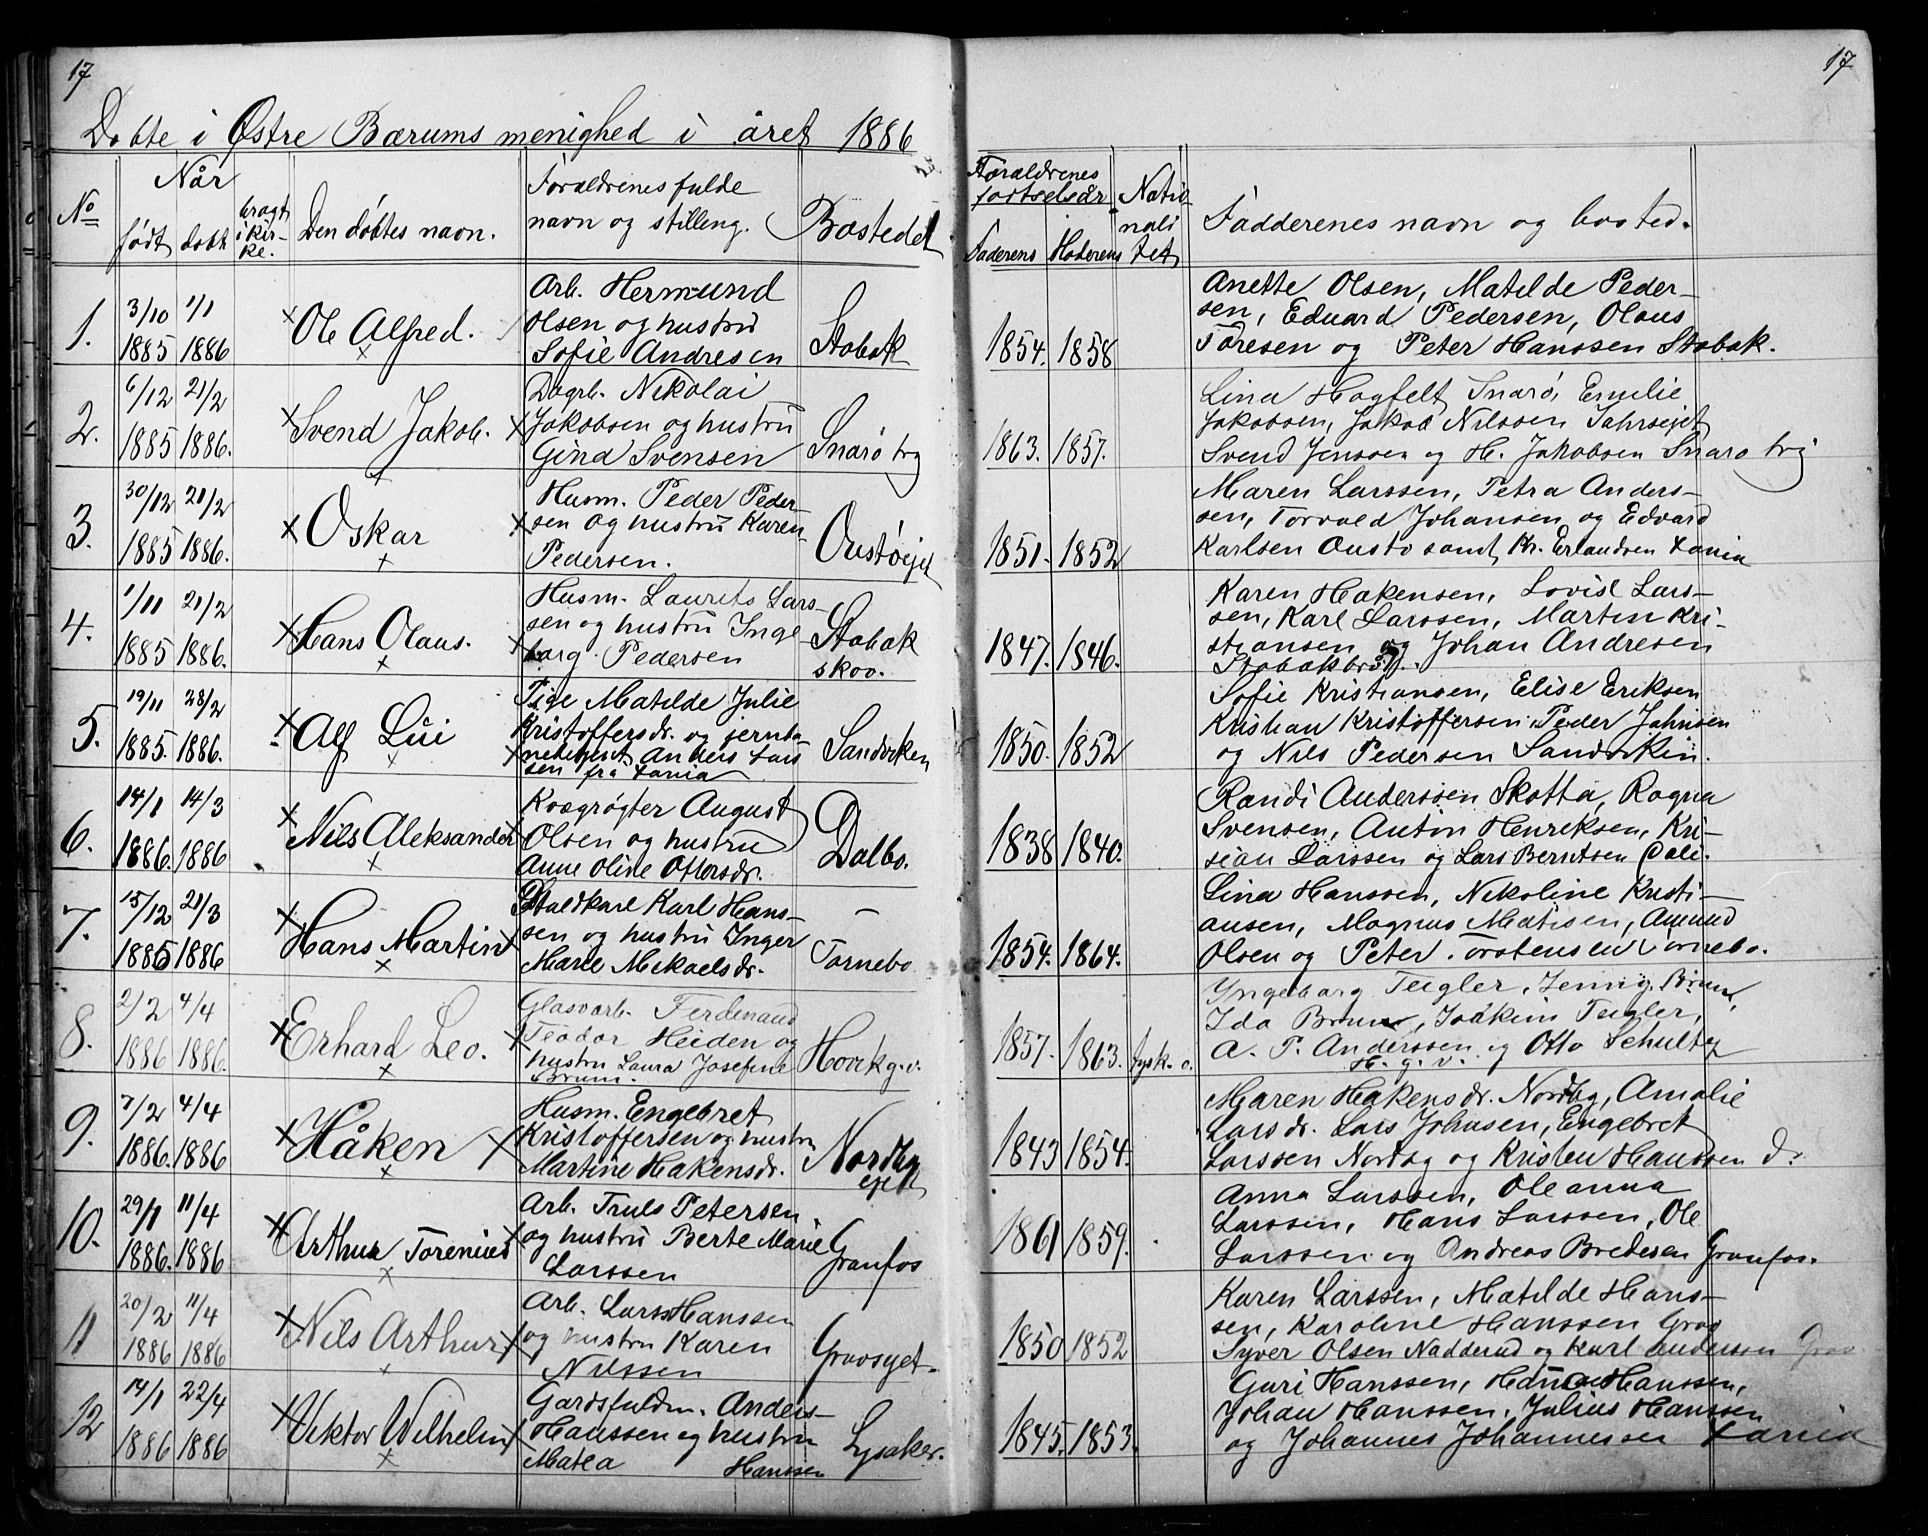 17
17
Døbte i Østre Bærums menighed i året 1886
No
Når
født
døbt
bragt i kirke.
Den døbtes navn.
Forældrenes fulde
navn og stilling.
Bostedet
Forældrenes
fødselsår
Faderens
Moderens
Natio-
nali
tet
Faddernes navn og bosted.
1.
3/10 1/1
1885 1886
Ole Alfred.
Arb. Hermund
Olsen og hustru
Sofie Andresen
Stabæk
1854. 1858
Anette Olsen, Matilde Peder-
sen, Eduard Pedersen, Olaus
Toresen og Peter Hanssen Stabæk.
2.
6/12 21/2
1885 1886.
Svend Jakob.
Dagrb. Nikolai
Jakobsen og hustru
Gina Svensen
Snarø brg
1863. 1857.
Lina Hogfelt Snarø, Emilie
Jakobsen, Jakob Nilssen
Svend Jenssen og H. Jakobsen Snarø brg
3.
30/12 21/2
1885 1886.
Oskar
Husm. Peder Peder-
sen og hustru Karen
Pedersen.
Oustøejet
1851. 1852
Maren Larssen, Petra Anders-
sen, Torvald Johansen og Edvard
Karlsen Oustø samt Kr. Erlandsen
4.
1/11 21/2
1885 1886.
Hans Olaus.
Husm. Laurits Lars-
sen og hustru Inge
borg Pedersen
Stabæk
skov.
1847. 1846.
Karen Hakensen, Lovise Lars-
sen, Karl Larssen, Martin Kri-
stiansen og Johan Andresen
5.
19/11 28/2
1885. 1886.
Alf Lüi
Pige Matilde Julie
Kristoffersdr. og jernba
Anders Lars
sen fra
Sandviken
1850. 1852
Sofie Kristiansen, Elise Eriksen
Kristian Kristoffersen Peder Jahnsen
og Nils Pedersen Sandviken.
6.
14/1 14/3
1886. 1886
Nils Aleksander
Kvægrøgter August
Olsen og hustru
Anne Oline Ottersdr.
Dalbo.
1838 1840.
Randi Anderssen Skotta, Ragna
Svensen, Anton Henriksen, Kri-
sian Larssen og Lars Berntsen
7.
15/12 21/3
1885 1886
Hans Martin
Staldkarl Karl Hans-
sen og hustru Inger
Marie Mikaelsdr.
Tornebo
1854. 1864.
Lina Hanssen, Nikoline Kristi-
ansen, Magnus Matisen, Amund
Olsen og Peter Torstensen Tornebo.
8.
2/2 4/4
1886 1886.
Erhard Leo.
Glasvarb. Ferdinand
Teodor Heiden og
hustru Laura Josefine
Brum.
Høvik g.v.
1857. 1863. tysk. o.
Yngeborg Teigler, Jenny Brum,
Ida Brum, Joakim Teigler,
A. P. Anderssen og Otto Schultz
H. g. v.
9.
7/2 4/4
1886. 1886
Håken
Husm. Engebret
Kristoffersen og hustru
Martine Hakensdr.
Nordby
ejet
1843 1854.
Maren Hakensdr. Nordby, Amalie
Larsdr. Lars Johnsen, Engebret
Larssen Nordby og Kristen Hanssen d.
10.
29/1 11/4
1886. 1886
Arthur Torenius
Arb. Truls Petersen
og hustru Berte Marie
Larssen
Granfos
1861 1859.
Anna Larssen, Oleanna
Larssen, Hans Larssen, Ole
Larssen og Andreas Bredesen Granfos.
11
20/2 11/4
1886 1886
Nils Arthur
Arb. Lars Hanssen
og hustru Karen
Nilssen
Gravsejet.
1850 1852
Karen Larssen, Matilde Hans-
sen, Karoline Hanssen Grav
Syver Olsen Nadderud og Karl Anderssen Grav
12
14/1 22/4
1886 1886
Viktor Wilhelm
Gårdsfuldm. Anders
Hanssen og hustru
Matea Hanssen
Lysaker.
1845. 1853.
Guri Hanssen, Hanssen,
Johan Hanssen, Julius Hanssen
og Johannes Johannessen